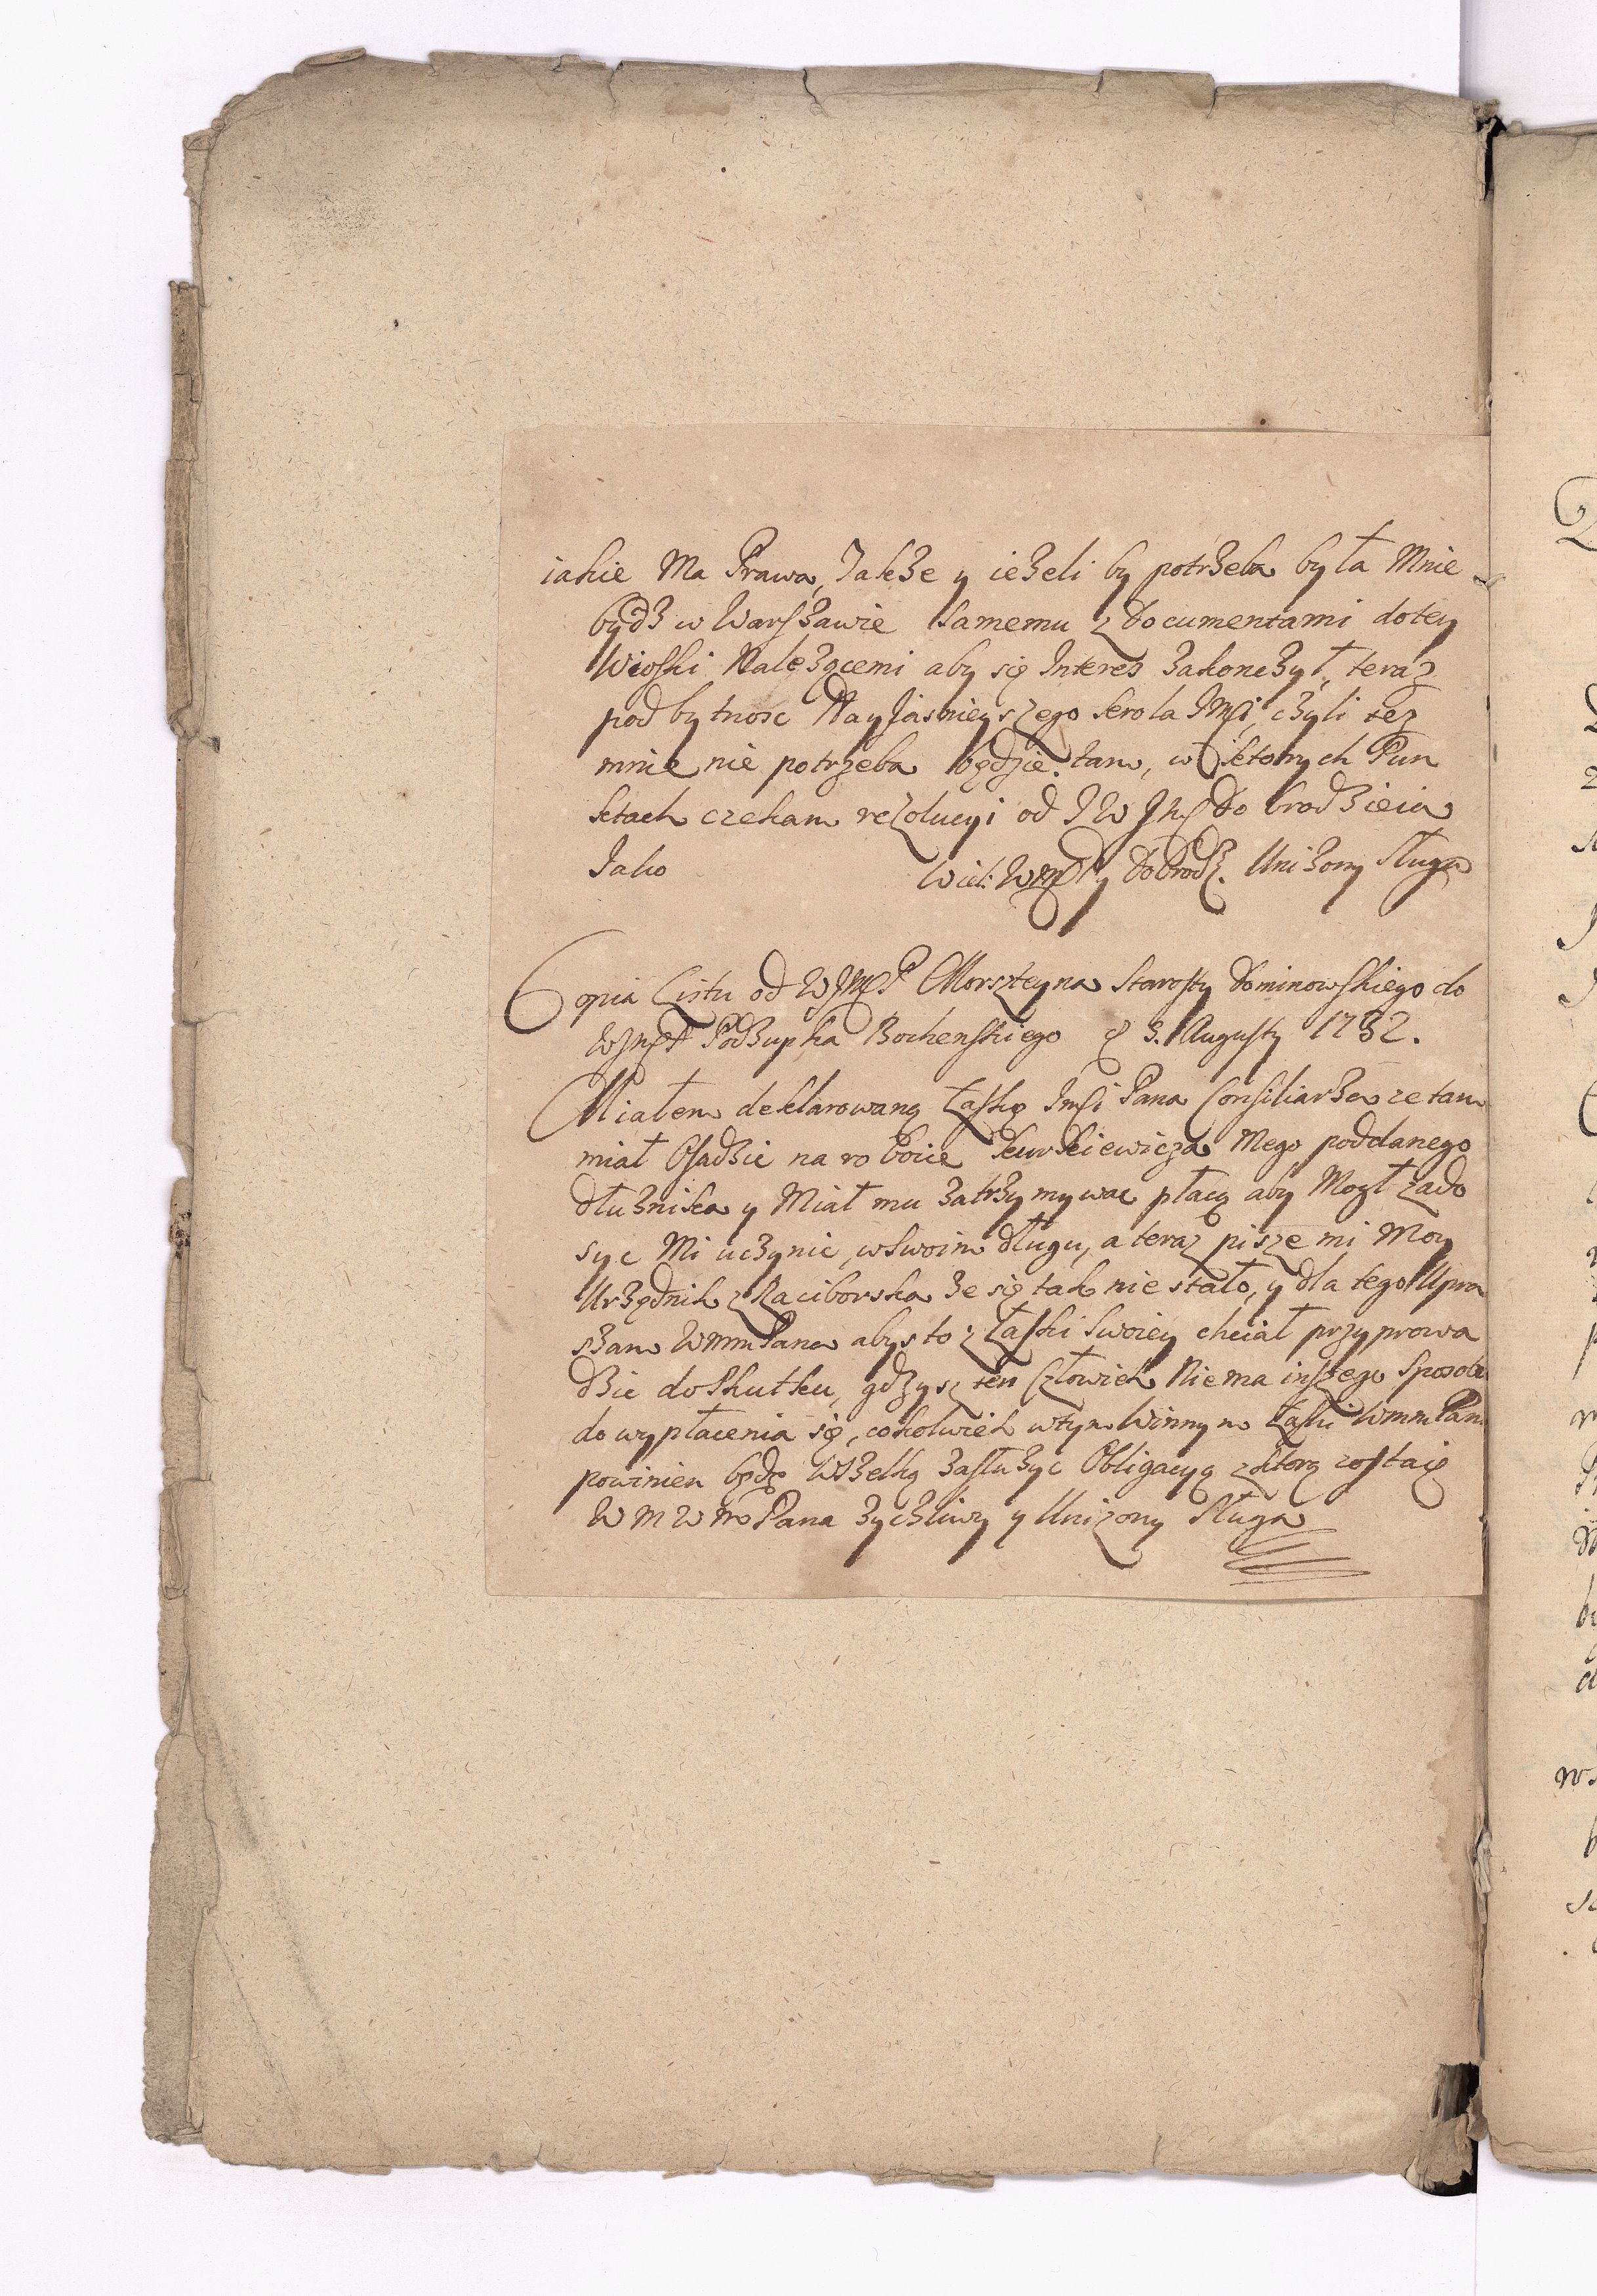 iakie Ma Prawa, Jakże y ieżeli by potrzeba była Mnie
bydź w Warszawie samemu z Documentami do tey
Wioski Należącemi aby się Interes zakonczył, teraz
pod bytnosc Nayjasnieyszego krola JMci, czyli tez
mnie nie potrzeba będzie tam, w ktorych Pun
ktach czekam rezolucyi od JW Dobrodzieia
Jako Dobrodz. Unizony Sługa
Copia Listu od WJMP Morsztyna Starosty Dominowskiego do
WJMP Podżupka Bochenskiego 3. Augusty 1732.
Miałem deklarowaną Łaskę Jmci Pana Consiliarza ze tam
miał Osadzic na robocie Mego poddanego
dłużnika y Miał mu zatrzymywac płacę aby Mogł zado
syc Mi uczynic, w swoim długu, a teraz pisze mi Moy
Urzędnik z Raciborska że się tak nie stało, y dla tego Upra
szam WMMPana abys to z Łaski swoiey chciał przyprowa
dzic do skutku, gdzysz ten Człowiek Niema inszego Sposobu
do wypłacenia się, cokolwiek w tym Winnym Łaski WMMPana
powinien będę Wszelką zasłużyc Obligacyą z ktorą zostaię
WMWM Pana życzliwy y Unizony Sługa